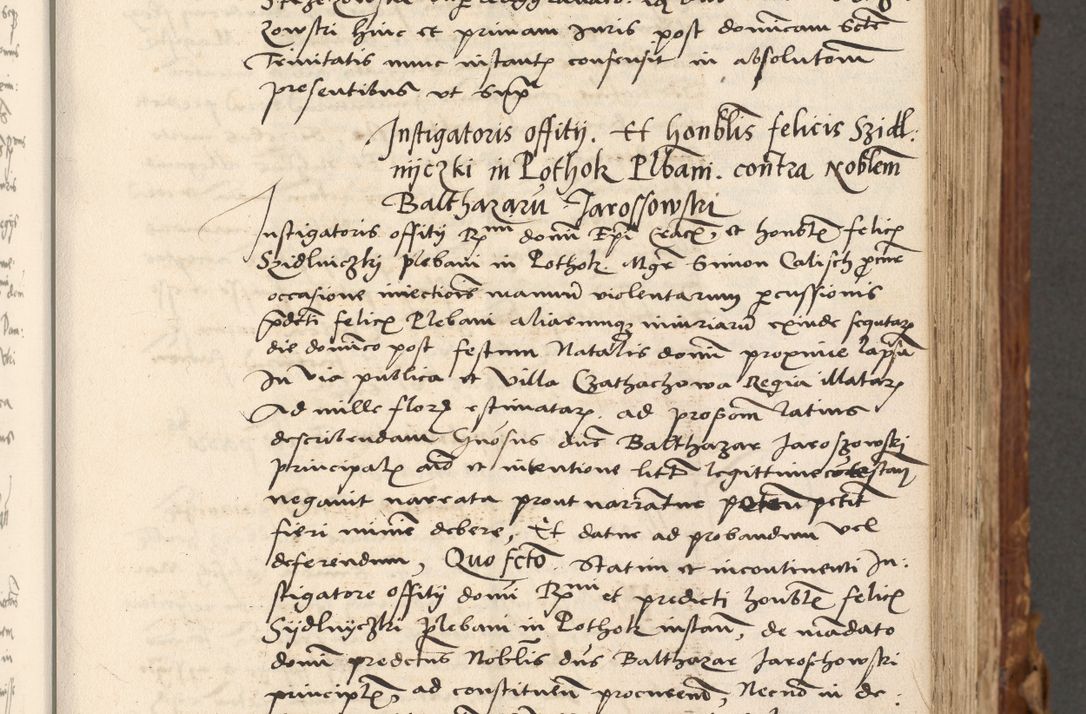 zowski hinc et primam Iuris post dominicam Scte
Trinitatis nunc instantis consensit in absolutom
presentibus ut supra
Instigatoris offitij. Et honblis felicis Szidl:
nijczki in Pothok Plbani. contra Noblem
Balthazarū Jarossowski
Instigatoris offitij Rmi domi Epi Crac, et honbl felic
Szidlniczkj Plebani in Pothok. Mgr Simon Calisch pcur
occasione iniectiois manuū violentarum pcussionis
pdcti felic Plebani aliarumq iniuriarū exinde sequtar
die dominico post festum Natalis domi proxime lapsa
In via publica et Villa Czathachowa Regia illatar
Ad mille flor estimatar. ad proposom latius
describendam Gnosus dns Balthazar Jaroszowski
principal aid et intentione lite legittime cotestari
negauit narrata prout narratur petit
fieri minime debere, Et datur ad probandum vel
deferendum, Quo fcto. Statim et incontinenti In:
stigatore offitij domi Rmi et predicti honbl felic
Sijdlnijczki Plebani in Pothok instan, de mādato
domi predictus Noblis dns Balthazar Jaroschowski
principl, ad constituū procurend, Necno in de: